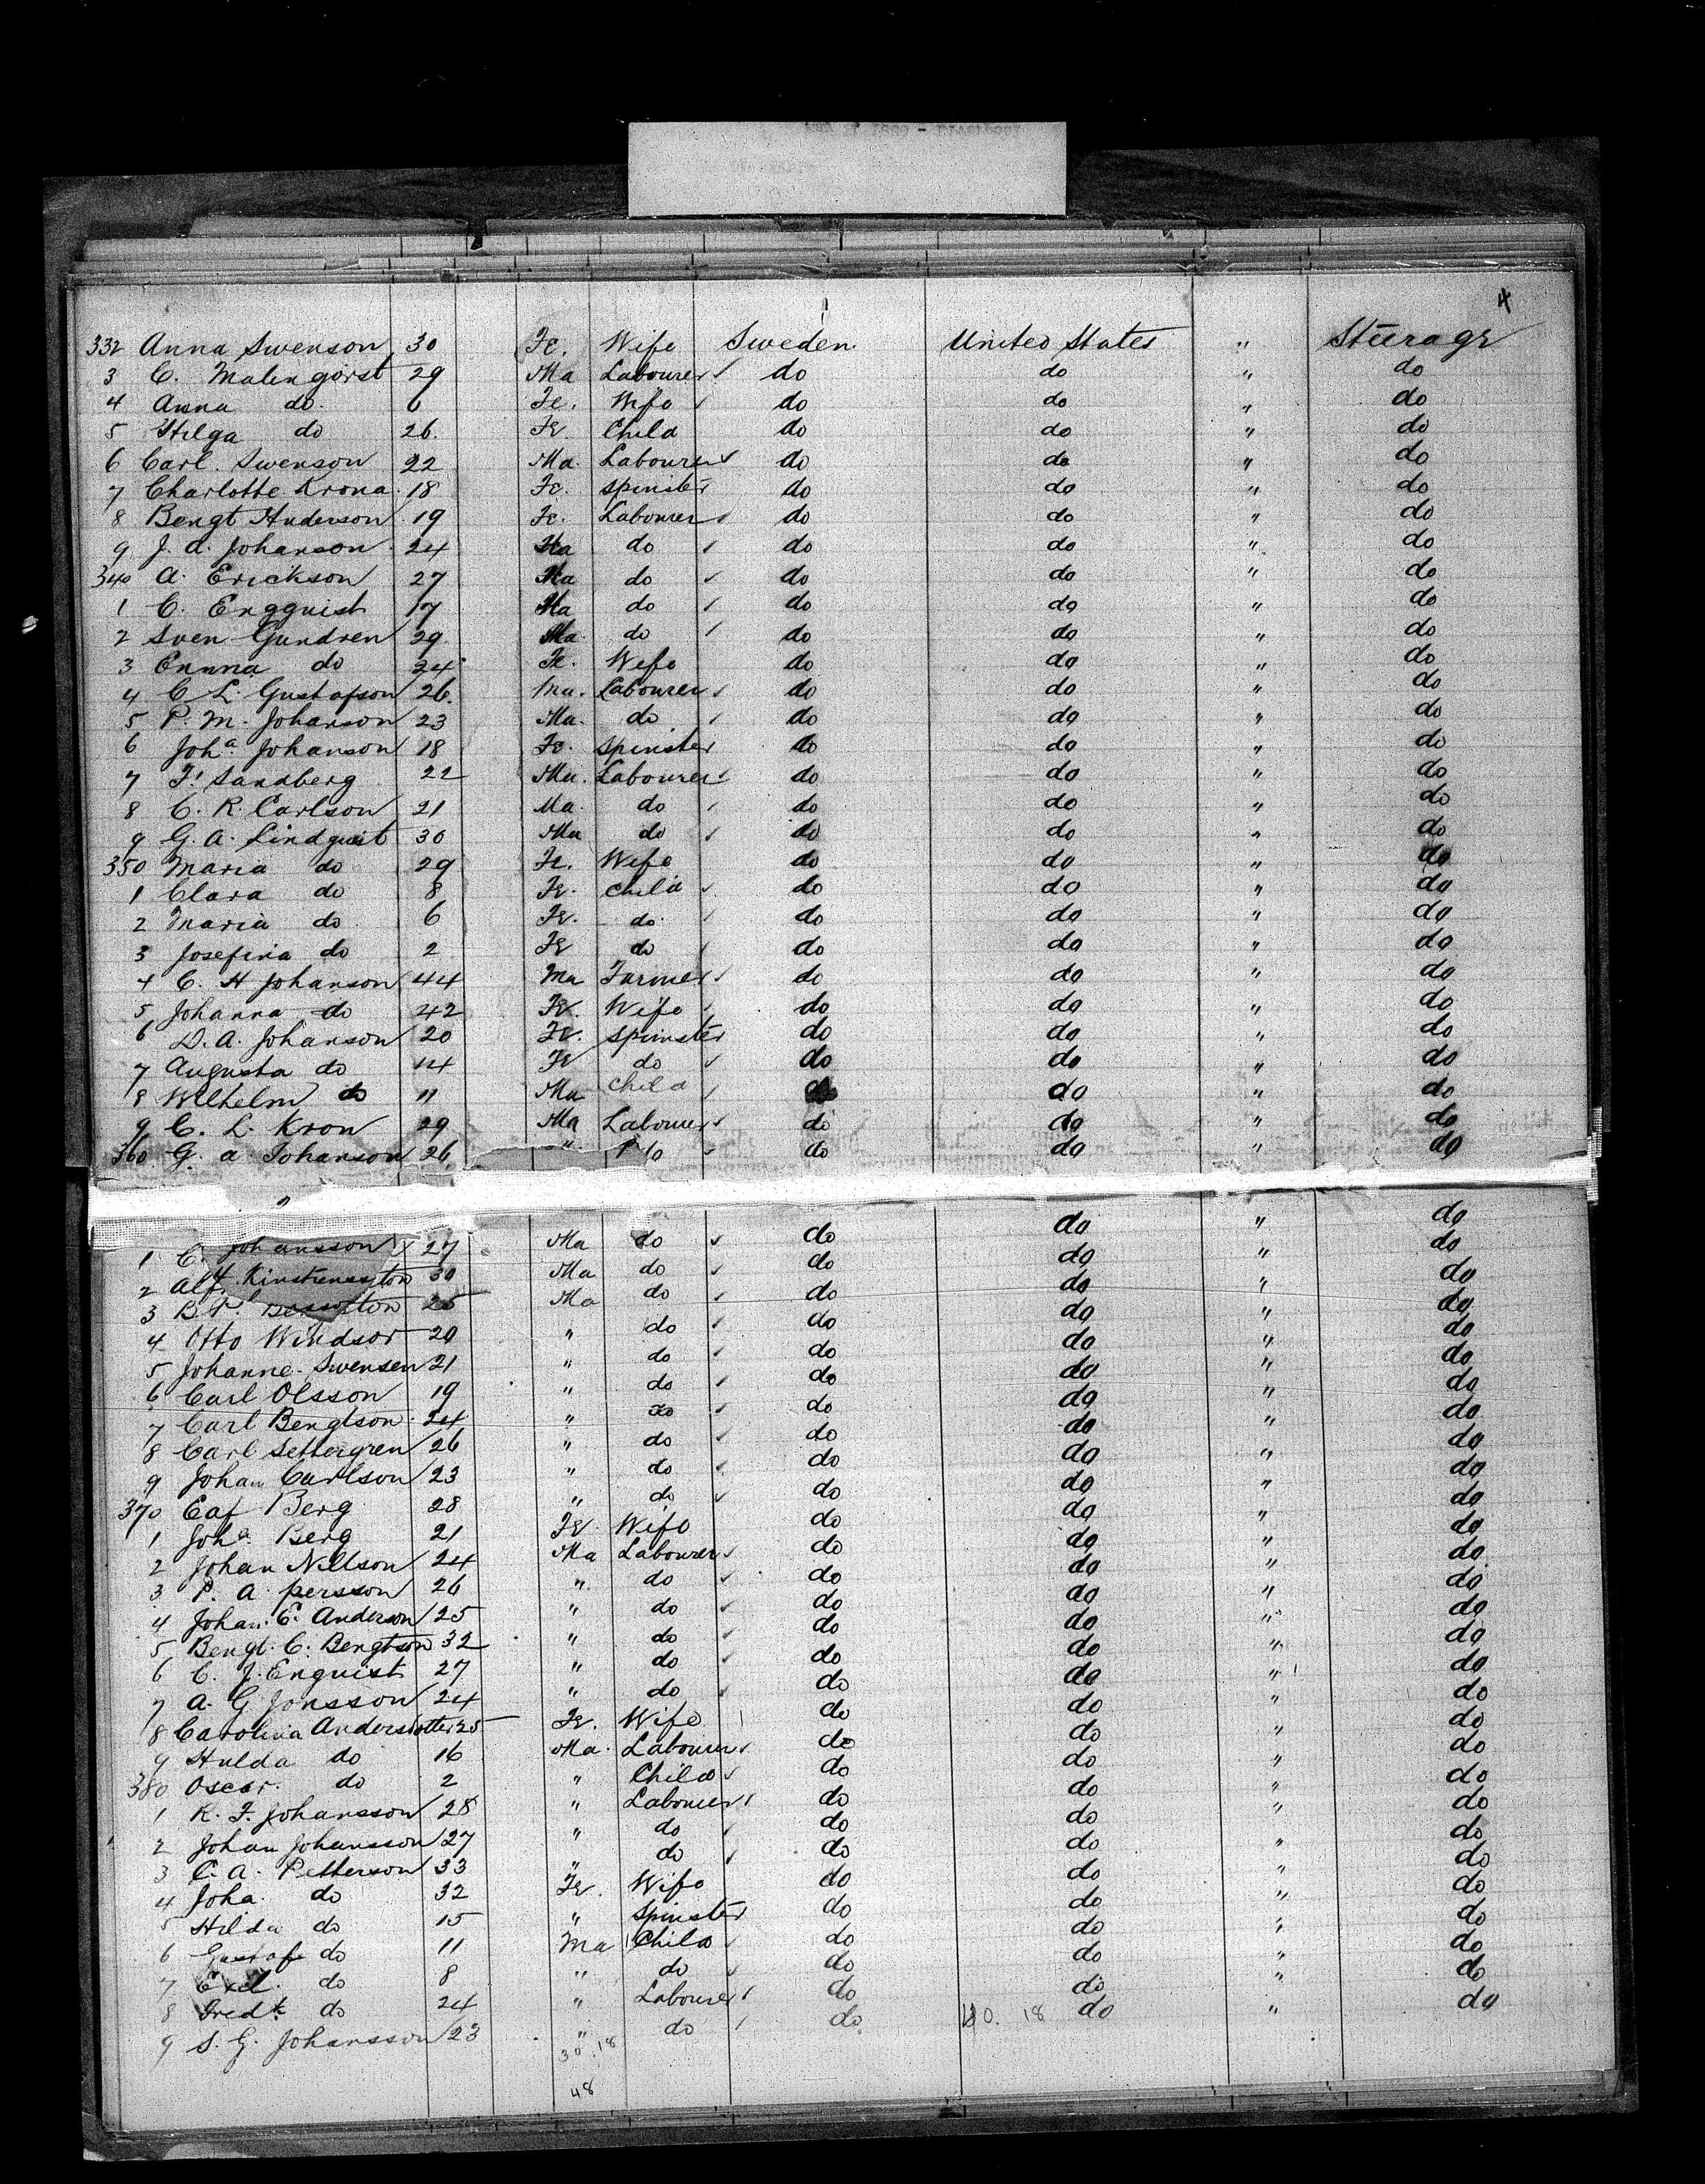 4
332 Anna Swenson 30 Fe. Wife Sweden United States " Steerage
3 C. Malengorst 29 Ma Labourer do do " do
4 Anna do 6 Fe. Wife do do " do
5 Hilga do 26. Fe. Child do do " do
6 Carl. Swenson 22 Ma. Labourer do do " do
7 Charlotte Krona 18 Fe. Spinster do do " do
8 Bengt Anderson 19 Fe. Labourer do do " do
9 J. A. Johanson 24 Ma do do do " do
340 A. Erickson 27 Ma do do do " do
1 C. Engquist 17 Ma do do do " do
2 Sven Gundren 29 Ma. do do do " do
3 Emma do 24 Fe. Wife do do " do
4 C L. Gustafson 26. Ma. Labourer do do " do
5 P. M. Johanson 23 Ma. do do do " do
6 Joha Johanson 18 Fe. Spinster do do " do
7 F. Sandberg 22 Ma. Labourer do do " do
8 C. R. Carlson 21 Ma. do do do " do
9 G. A. Lindquist 30 Ma do do do " do
350 Maria do 29 Fe. Wife do do " do
1 Clara do 8 Fe. Child do do " do
2 Maria do 6 Fe. do do do " do
3 Josefina do 2 Fe do do do " do
4 C. H Johanson 44 Ma Farmer do do " do
5 Johanna do 42 Fe. Wife do do " do
6 D. A. Johanson 20 Fe. Spinster do do " do
7 Augusta do 14 Fe do do do " do
8 Wilhelm do 11 Ma Child do do " do
9 C. L. Kron 29 Ma Labourer do do " do
360 G. A Johanson 26 " do do do " do
1 C. Johansson 27 Ma do do do " do
2 Alf. 30 Ma do do do " do
3 B. 25 Ma do do do " do
4 Otto Windsor 20 " do do do " do
5 Johanne Swensen 21 " do do do " do
6 Carl Olsson 19 " do do do " do
7 Carl Bengtson 24 " do do do " do
8 Carl Settergren 26 " do do do " do
9 Johan Carlson 23 " do do do " do
370 Berg 28 " do do do " do
1 Joha Berg 21 Fe. Wife do do " do
2 Johan Nilson 24 Ma Labourer do do " do
3 P. A. Persson 26 " do do do " do
4 Johan E. Anderson 25 " do do do " do
5 Bengt. C. Bengtson 32 " do do do " do
6 C. J. Enquist 27 " do do do " do
7 A. G. Jonsson 24 " do do do " do
8 Carolina Andersdotter 25 Fe. Wife do do " do
9 Hulda do 16 Ma. Labourer do do " do
380 Oscar do 2 " Child do do " do
1 K. F. Johansson 28 " Labourer do do " do
2 Johan Johansson 27 " do do do " do
3 C. A. Petterson 33 " do do do " do
4 Joha. do 32 Fe. Wife do do " do
5 Hilda do 15 " Spinster do do " do
6 Gustaf do 11 Ma Child do do " do
7 do 8 " do do do " do
8 Fredk do 24 " Labourer do do " do
9 S. G. Johansson 23 " do do 40. 18 do " do
30.18
48